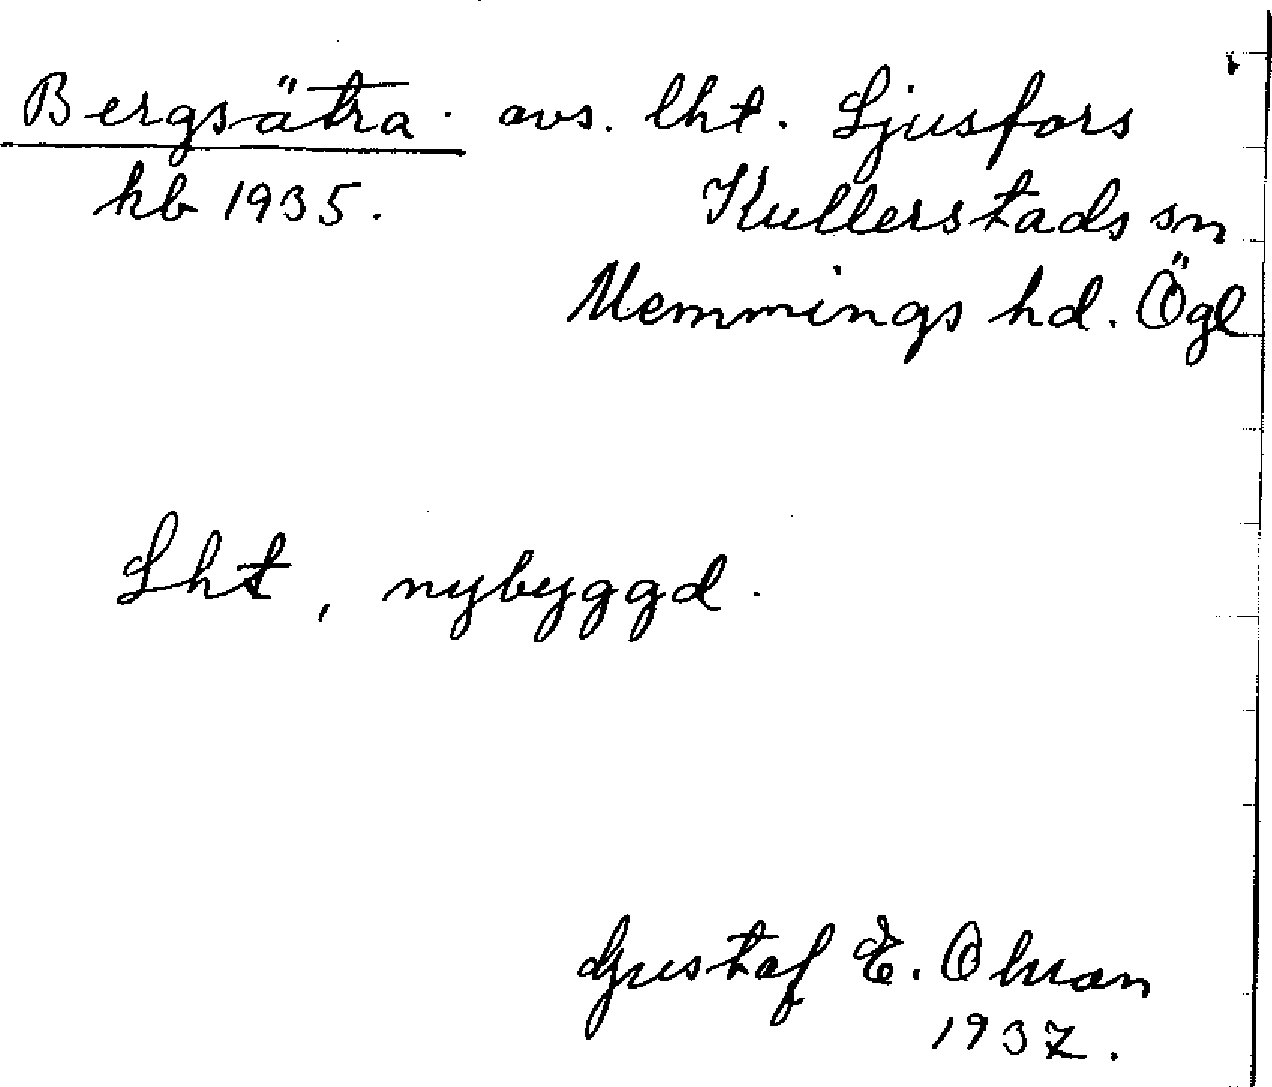 Bergsätra. avs. lht. Ljusfors
hb 1935. Kullerstads sn
Memmings hd. Ögl
Lht, nybyggd.
Gustaf E.
1937.